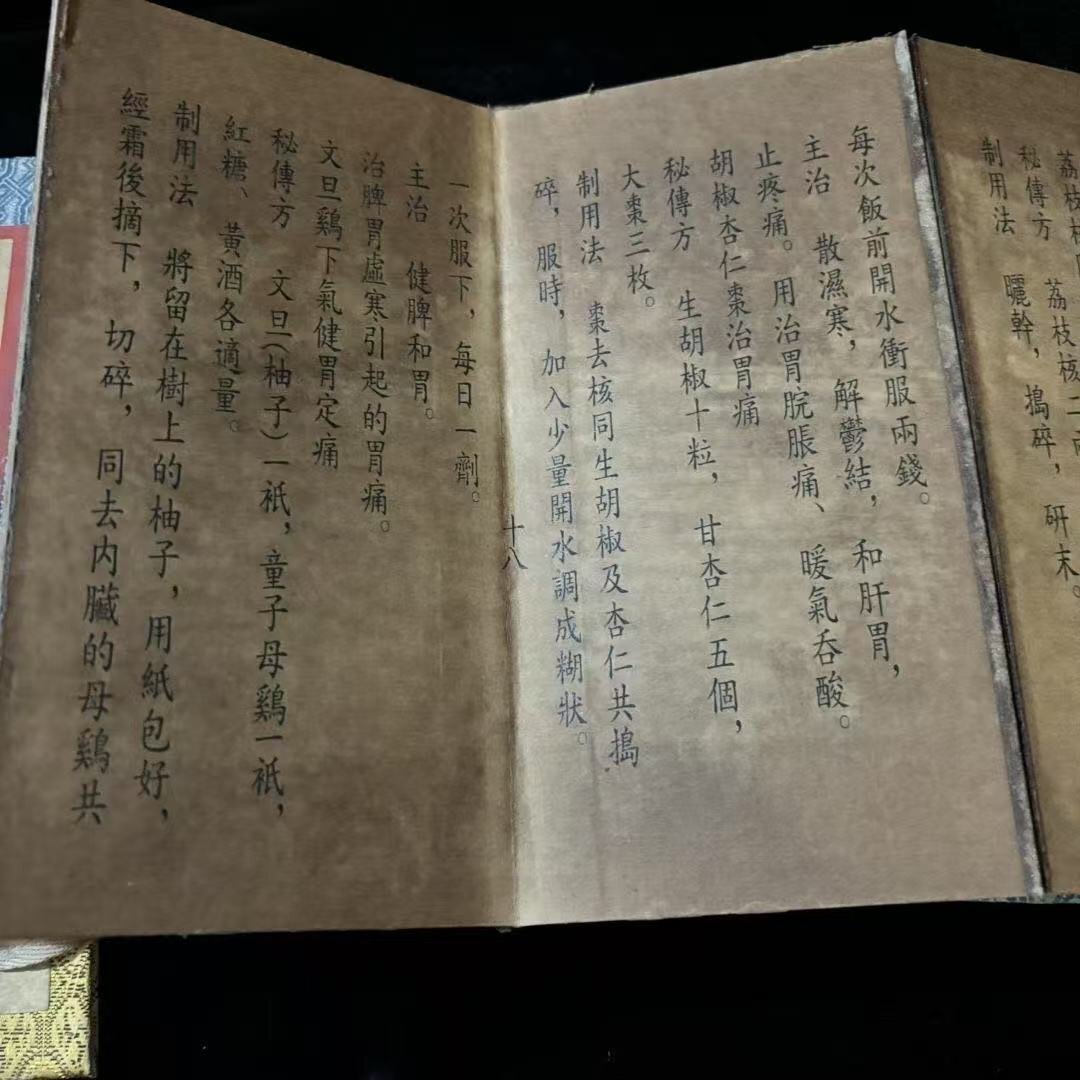 荔枝核
秘傳方 荔枝核二兩
制用法 曬幹，搗碎，研末。
每次飯前開水衝服兩錢。
主治 散濕寒，解鬱結，和肝胃，
止疼痛。用治胃脘脹痛、暖氣吞酸。
胡椒杏仁棗治胃痛
秘傳方 生胡椒十粒，甘杏仁五個，
大棗三枚。
制用法 棗去核同生胡椒及杏仁共搗
碎，服時，加入少量開水調成糊狀。
十八
一次服下，每日一劑。
主治 健脾和胃。
治脾胃虛寒引起的胃痛。
文旦鷄下氣健胃定痛
秘傳方 文旦（柚子）一衹，童子母鷄一衹，
紅糖、黃酒各適量。
制用法 將留在樹上的柚子，用紙包好，
經霜後摘下，切碎，同去内臟的母鷄共